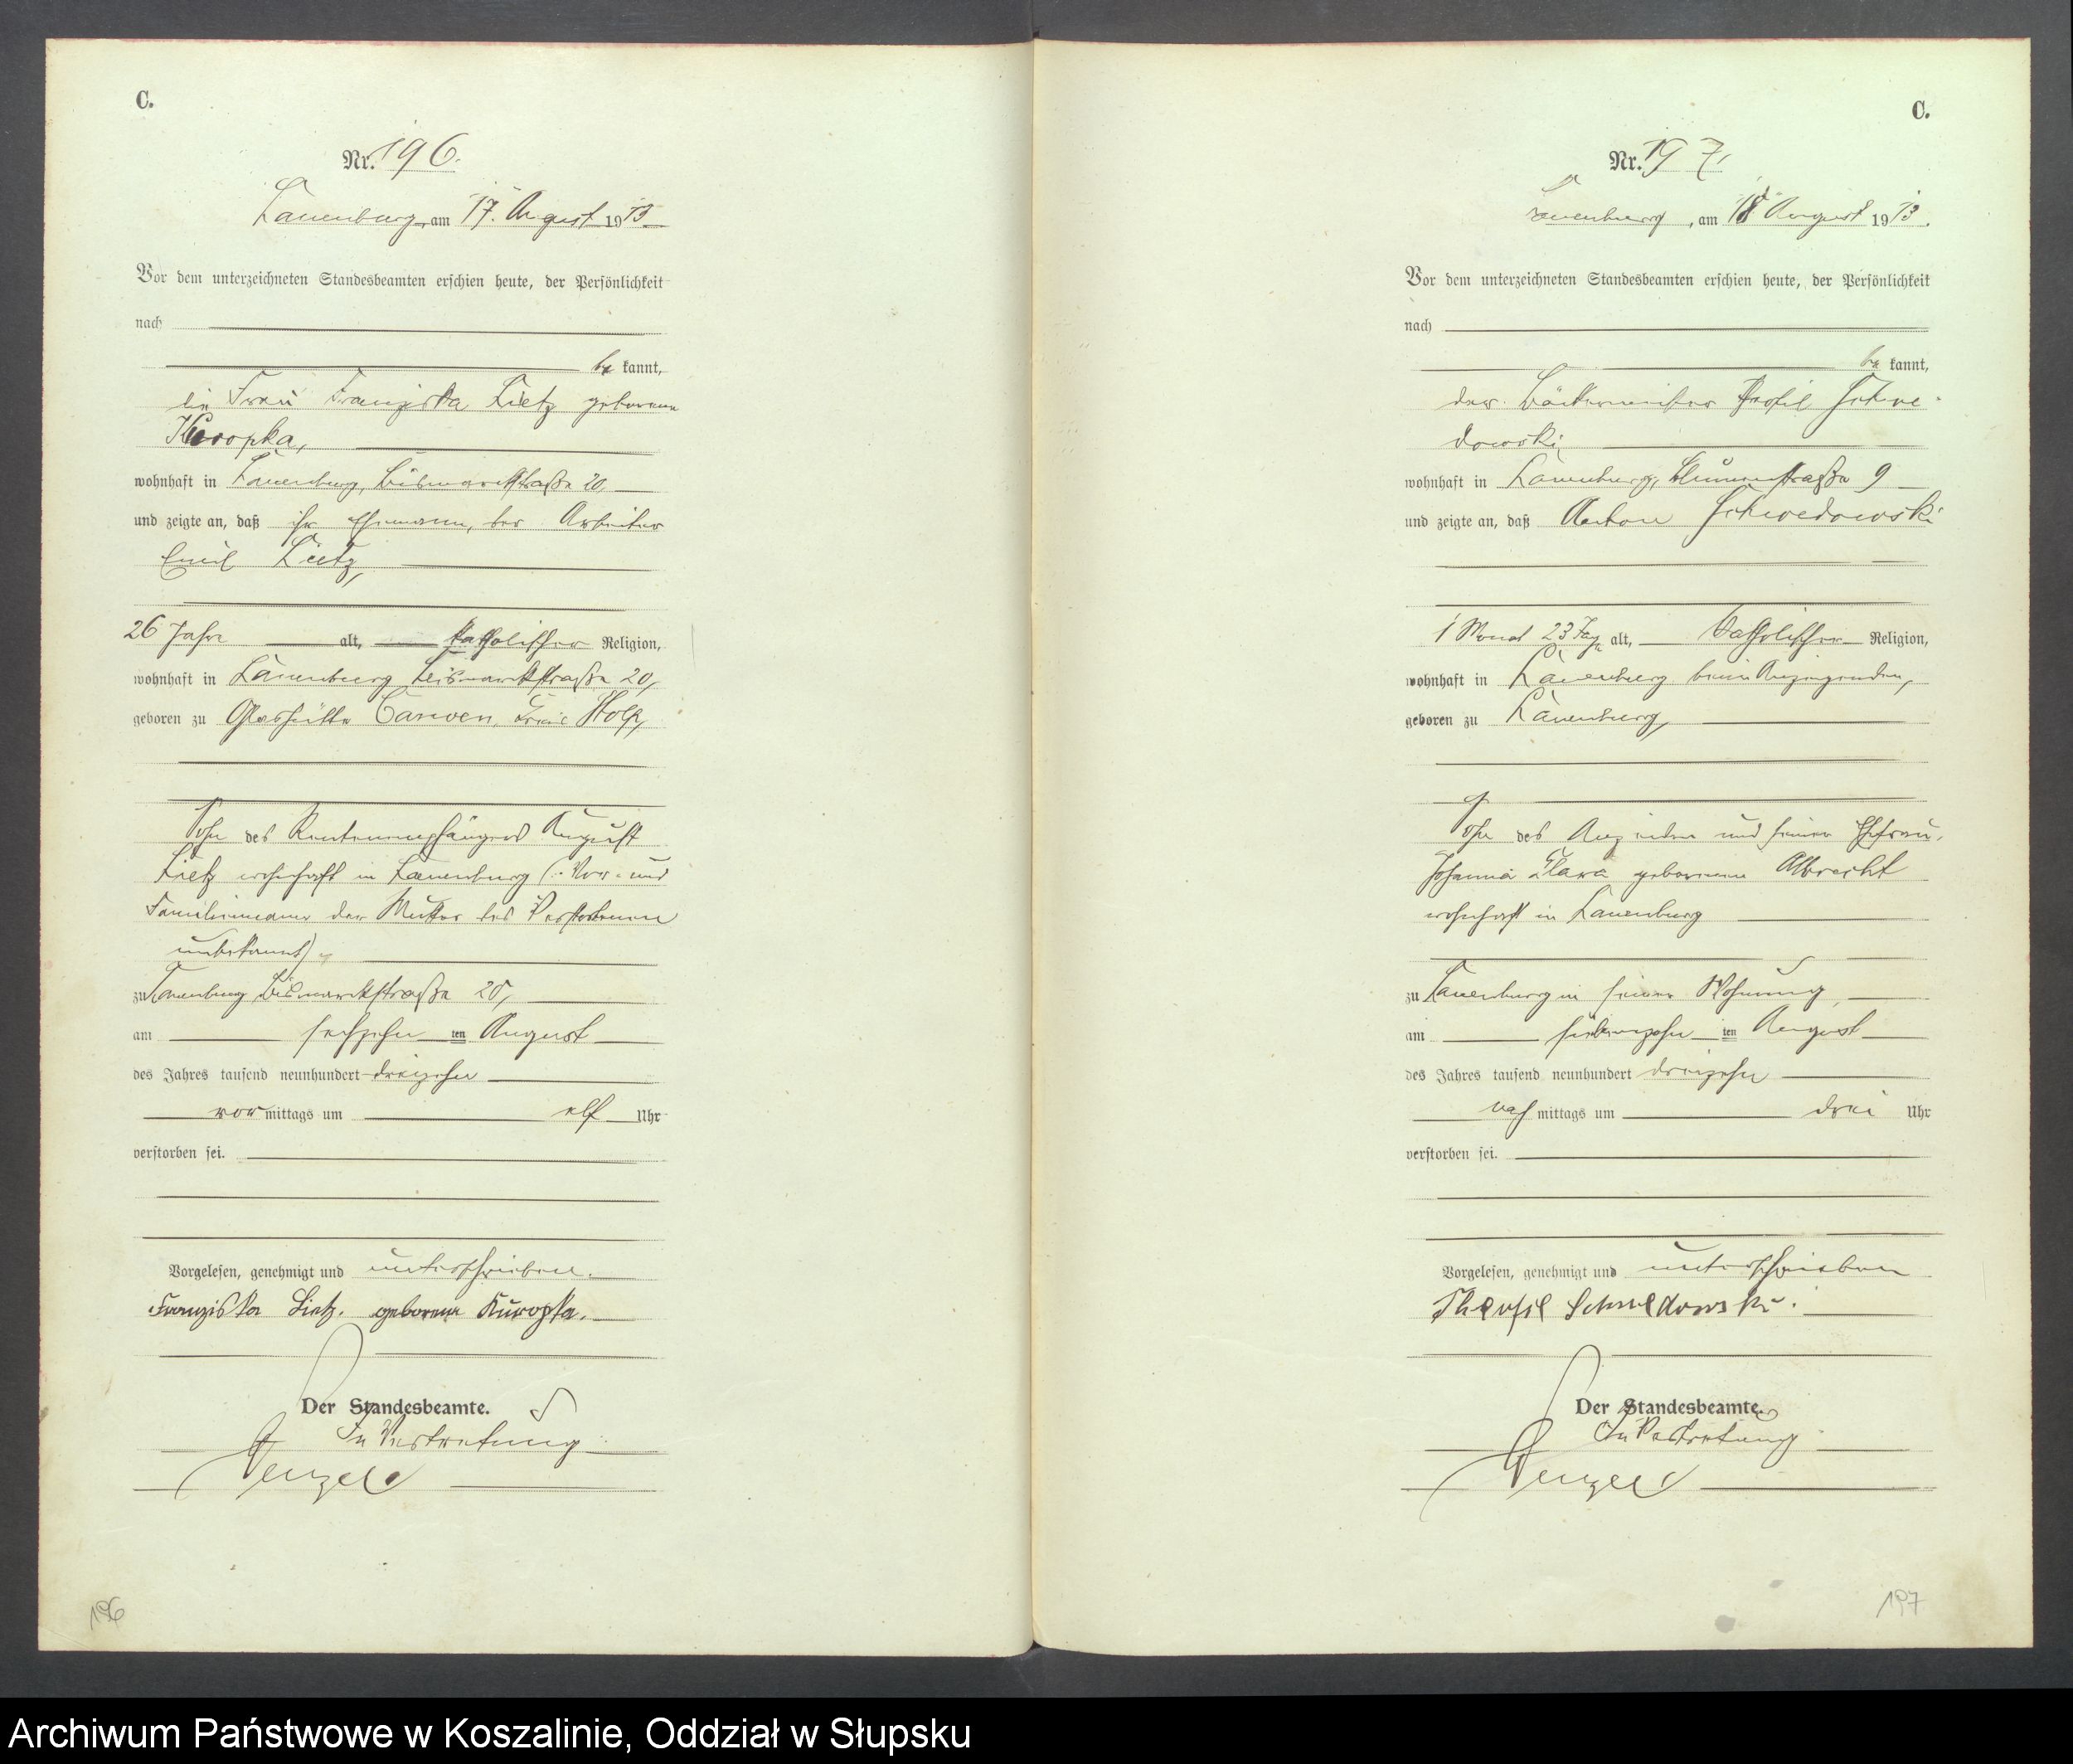 C.
Nr. 196.
Lauenburg, am 17. August 1913
Vor dem unterzeichneten Standesbeamten erschien heute, der Persönlichkeit
nach
be kannt,
die Frau Franziska Lietz geborene
Kuropka,
wohnhaft in Lauenburg, Bismarckstraße 20,
und zeigte an, daß ihr Ehemann, der Arbeiter
Emil Lietz,
26 Jahre alt, katholischer Religion,
wohnhaft in Lauenburg Bismarckstraße 20,
geboren zu Glashütte Carwen, Kreis Stolp,
Sohn des Rentenempfängers August
Lietz wohnhaft in Lauenburg (: Vor- und
Familienname der Mutter des Verstorbenen
unbekannt)
zu Lauenburg Bismarckstraße 20,
am sechzehn ten August
des Jahres tausend neunhundert dreizehn
vor mittags um elf Uhr
verstorben sei.
Vorgelesen, genehmigt und unterschrieben.
Franziska Lietz. geborene Kuropka.
Der Standesbeamte.
In Vertretung
196
C.
Nr. 197,
Lauenburg, am 18 August 1913.
Vor dem unterzeichneten Standesbeamten erschien heute, der Persönlichkeit
nach
be kannt,
der Bäckermeister Schwe-
dowski
wohnhaft in Lauenburg, Blumenstraße 9
und zeigte an, daß Anton Schwedowski
1 Monat 23 Tage alt, katholischer Religion,
wohnhaft in Lauenburg beim Anzeigenden,
geboren zu Lauenburg,
Sohn des und seiner Ehefrau,
Johanna Clara geborene Albrecht
wohnhaft in Lauenburg
zu Lauenburg in seiner Wohnung,
am siebenzehn ten August
des Jahres tausend neunhundert dreizehn
nach mittags um drei Uhr
verstorben sei.
Vorgelesen, genehmigt und unterschrieben
Theofil Schwedowski.
Der Standesbeamte.
In Vertretung
197
Archiwum Państwowe w Koszalinie, Oddział w Słupsku